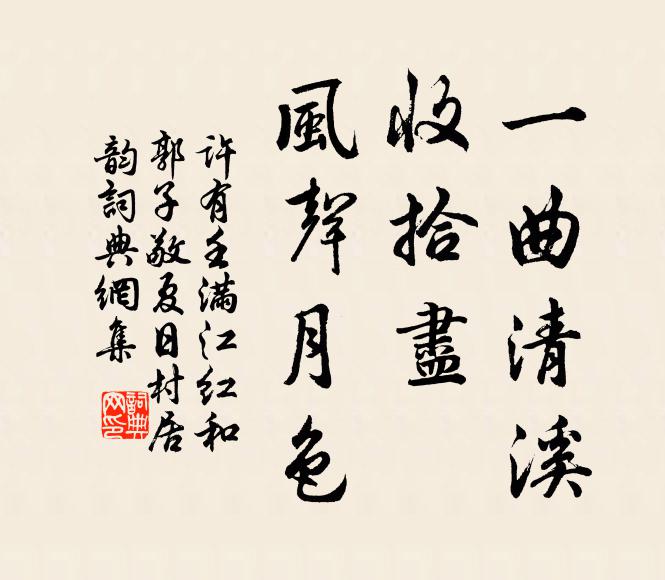 一曲清溪
收拾盡
風聲月色
許有壬滿江紅和
郭子敬夏日村居
韵詞典網集
詞典
网印